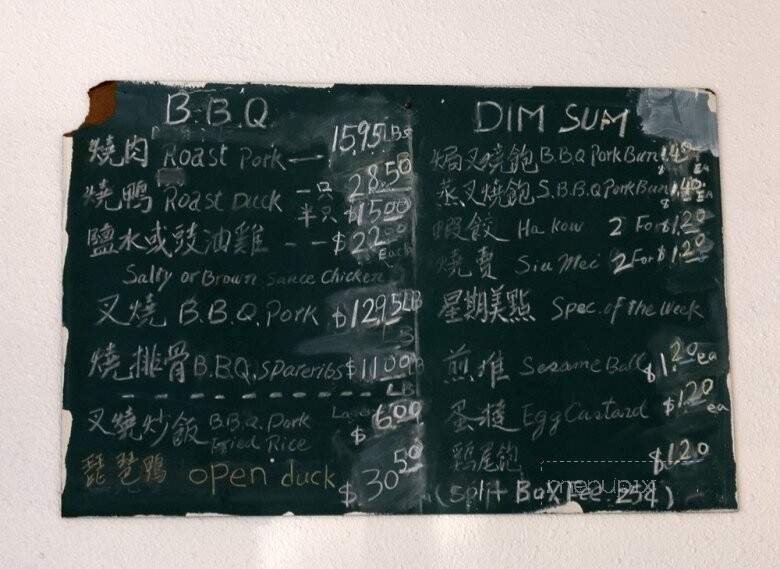 B.B.Q
燒肉 Roast Pork → 15.95 LBS
燒鴨 Roast Duck 一只 28.50
半只 $15.00
鹽水或豉油雞 -- $22.00 Each
Salty or Brown Sauce Chicken
叉燒 B.B.Q. Pork $12.95 LB
燒排骨 B.B.Q. Spareribs $11.00 LB
叉燒炒飯 B.B.Q. Pork Fried Rice Large $6.00
琵琶鴨 open duck $30.50
DIM SUM
焗叉燒飽 B.B.Q Pork Bun $1.40 Ea
蒸叉燒飽 S.B.B.Q Pork Bun $1.40 EA
蝦餃 Ha kow 2 For $1.20
燒賣 Siu Mei 2 For $1.20
星期美點 Spec. of the Week
煎堆 Sesame Ball $1.20 ea
蛋撻 Egg Custard $1.20 ea
雞尾飽 $1.20
(Split Box Fee .25¢)
menupix